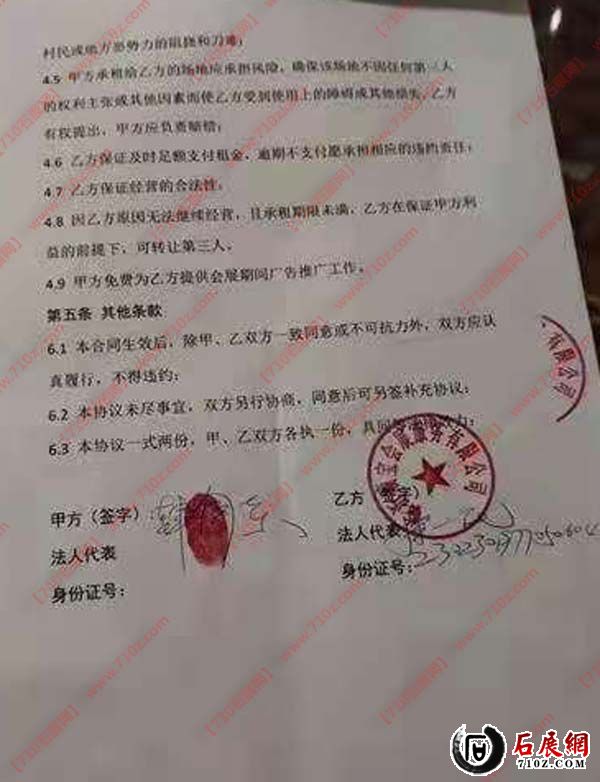 村民或地方恶势力的阻挠和刁难;
4.5 甲方承租给乙方的场地应承担风险，确保该场地不因任何第三人
的权利主张或其他因素而使乙方受到使用上的障碍或其他损失，乙方
有权提出，甲方应负责赔偿;
4.6 乙方保证及时足额支付租金，逾期不支付愿承担相应的违约责任;
4.7 乙方保证经营的合法性;
4.8 因乙方原因无法继续经营，且承租期限未满，乙方在保证甲方利
益的前提下，可转让第三人。
4.9 甲方免费为乙方提供会展期间广告推广工作。
第五条 其他条款
6.1 本合同生效后，除甲、乙双方一致同意或不可抗力外，双方应认
真履行，不得违约;
6.2 本协议未尽事宜，双方另行协商，同意后可另签补充协议;
6.3 本协议一式两份，甲、乙双方各执一份，具同
力;
有限公司
宝会展服务有限公司
甲方（签字）
法人代表
身份证号:
乙方（签字）
法人代表
身份证号:
【710石展网】www.710z.com
石展網
710z.com